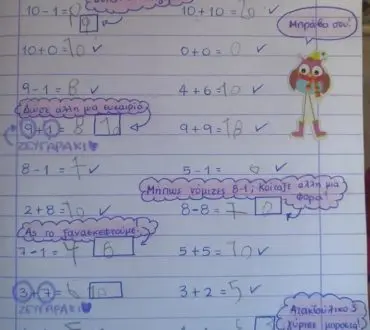 10-1=8 9
10+10=
Μπράβο σου!
10+0=10 ✓
0+0=0 ✓
9-1=8 ✓
4+6=10 ✓
Δώσε άλλη μια ευκαιρία
9+1=8 10
9+9=18 ✓
ΖΕΥΓΑΡΑΚΙ
8-1=7 ✓
5-1= ✓
Μήπως νόμιζες 8-1; Κοίταξε άλλη μια φορά!
2+8=10 ✓
8-8=7 0
Ας το ξανασκεφτούμε!
7-1=4 6
5+5=10 ✓
3+7=6 10
3+2=5 ✓
ΖΕΥΓΑΡΑΚΙ